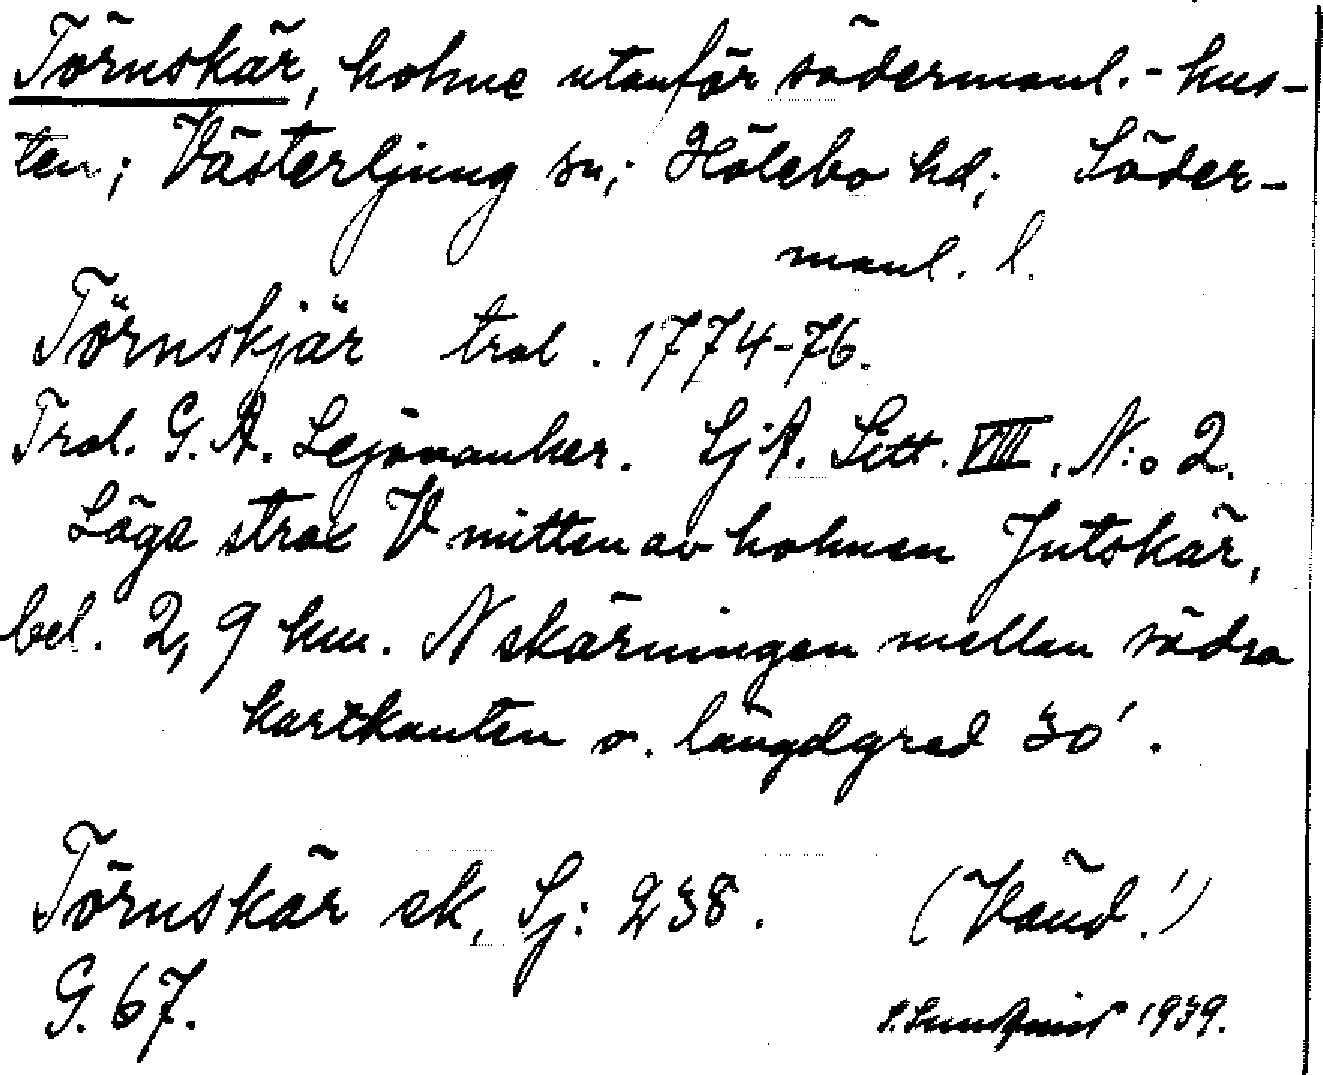 Törnskär, holme utanför södermanl.-kus-
ten; Västerljung sn; Hölebo hd; Söder-
manl. l.
Törnskjär trol. 1774-76.
Trol. G. A. Lejonanker. Sj A. Litt. VIII. N:o 2.
Läge strax V mitten av holmen Jutskär,
bel. 2,9 km. N skärningen mellan södra
kartkanten o. längdgrad 30'.
Törnskär ek, Sj: 238. (Vänd!)
G. 67. 1939.